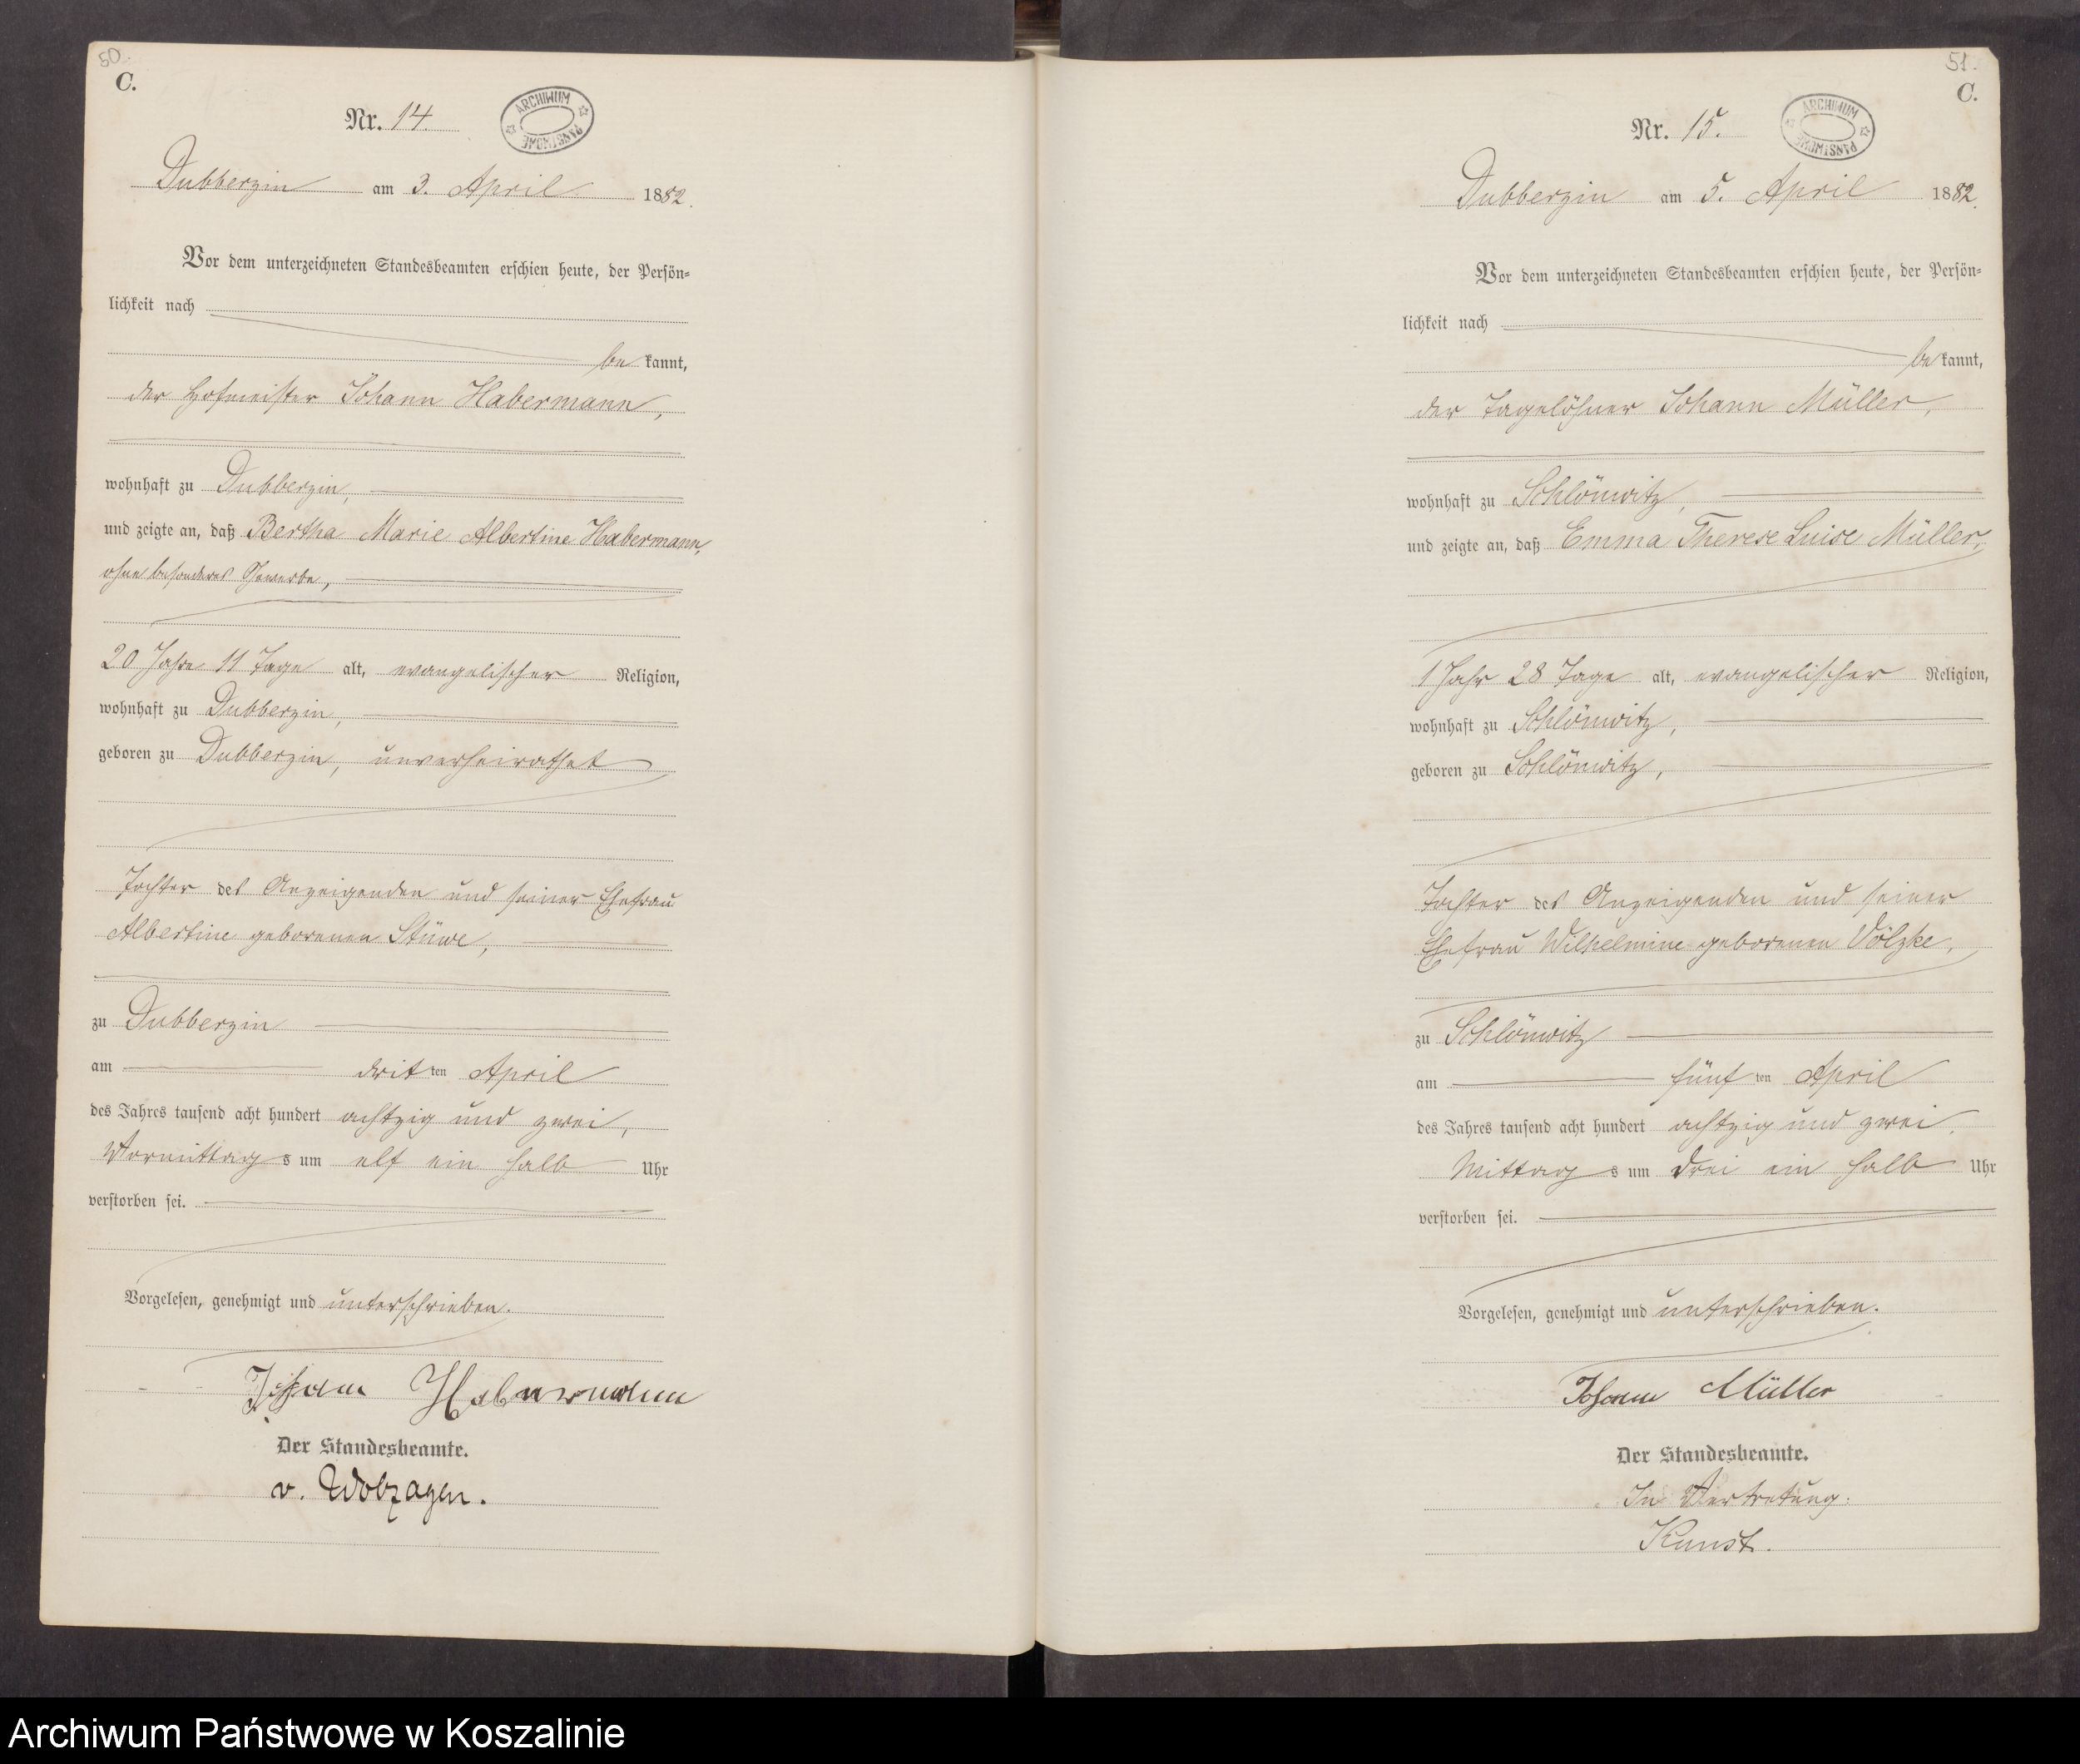 50.
C.
Nr. 14.
ARCHIWUM PAŃSTWOWE
Dubberzin am 3. April 1882.
Vor dem unterzeichneten Standesbeamten erschien heute, der Persön-
lichkeit nach
be kannt,
der Hofmeister Johann Habermann,
wohnhaft zu Dubberzin,
und zeigte an, daß Bertha Marie Albertine Habermann,
ohne besonderes Gewerbe,
20 Jahre 11 Tage alt, evangelischer Religion,
wohnhaft zu Dubberzin,
geboren zu Dubberzin, unverheirathet
Tochter des Anzeigenden und seiner Ehefrau
Albertine geborenen Stüwe,
zu Dubberzin
am dritten April
des Jahres tausend acht hundert achtzig und zwei,
Vormittags um elf ein halb Uhr
verstorben sei.
Vorgelesen, genehmigt und unterschrieben.
Johann Habermann
Der Standesbeamte.
v. Wolzogen.
51.
C.
Nr. 15.
ARCHIWUM PAŃSTWOWE
Dubberzin am 5. April 1882.
Vor dem unterzeichneten Standesbeamten erschien heute, der Persön-
lichkeit nach
be kannt,
der Tagelöhner Johann Müller,
wohnhaft zu Schlönwitz,
und zeigte an, daß Emma Therese Luise Müller,
1 Jahr 28 Tage alt, evangelischer Religion,
wohnhaft zu Schlönwitz,
geboren zu Schlönwitz,
Tochter des Anzeigenden und seiner
Ehefrau Wilhelmine geborenen Völzke,
zu Schlönwitz
am fünften April
des Jahres tausend acht hundert achtzig und zwei,
Mittags um drei ein halb Uhr
verstorben sei.
Vorgelesen, genehmigt und unterschrieben.
Johann Müller
Der Standesbeamte.
In Vertretung:
Kunst.
Archiwum Państwowe w Koszalinie